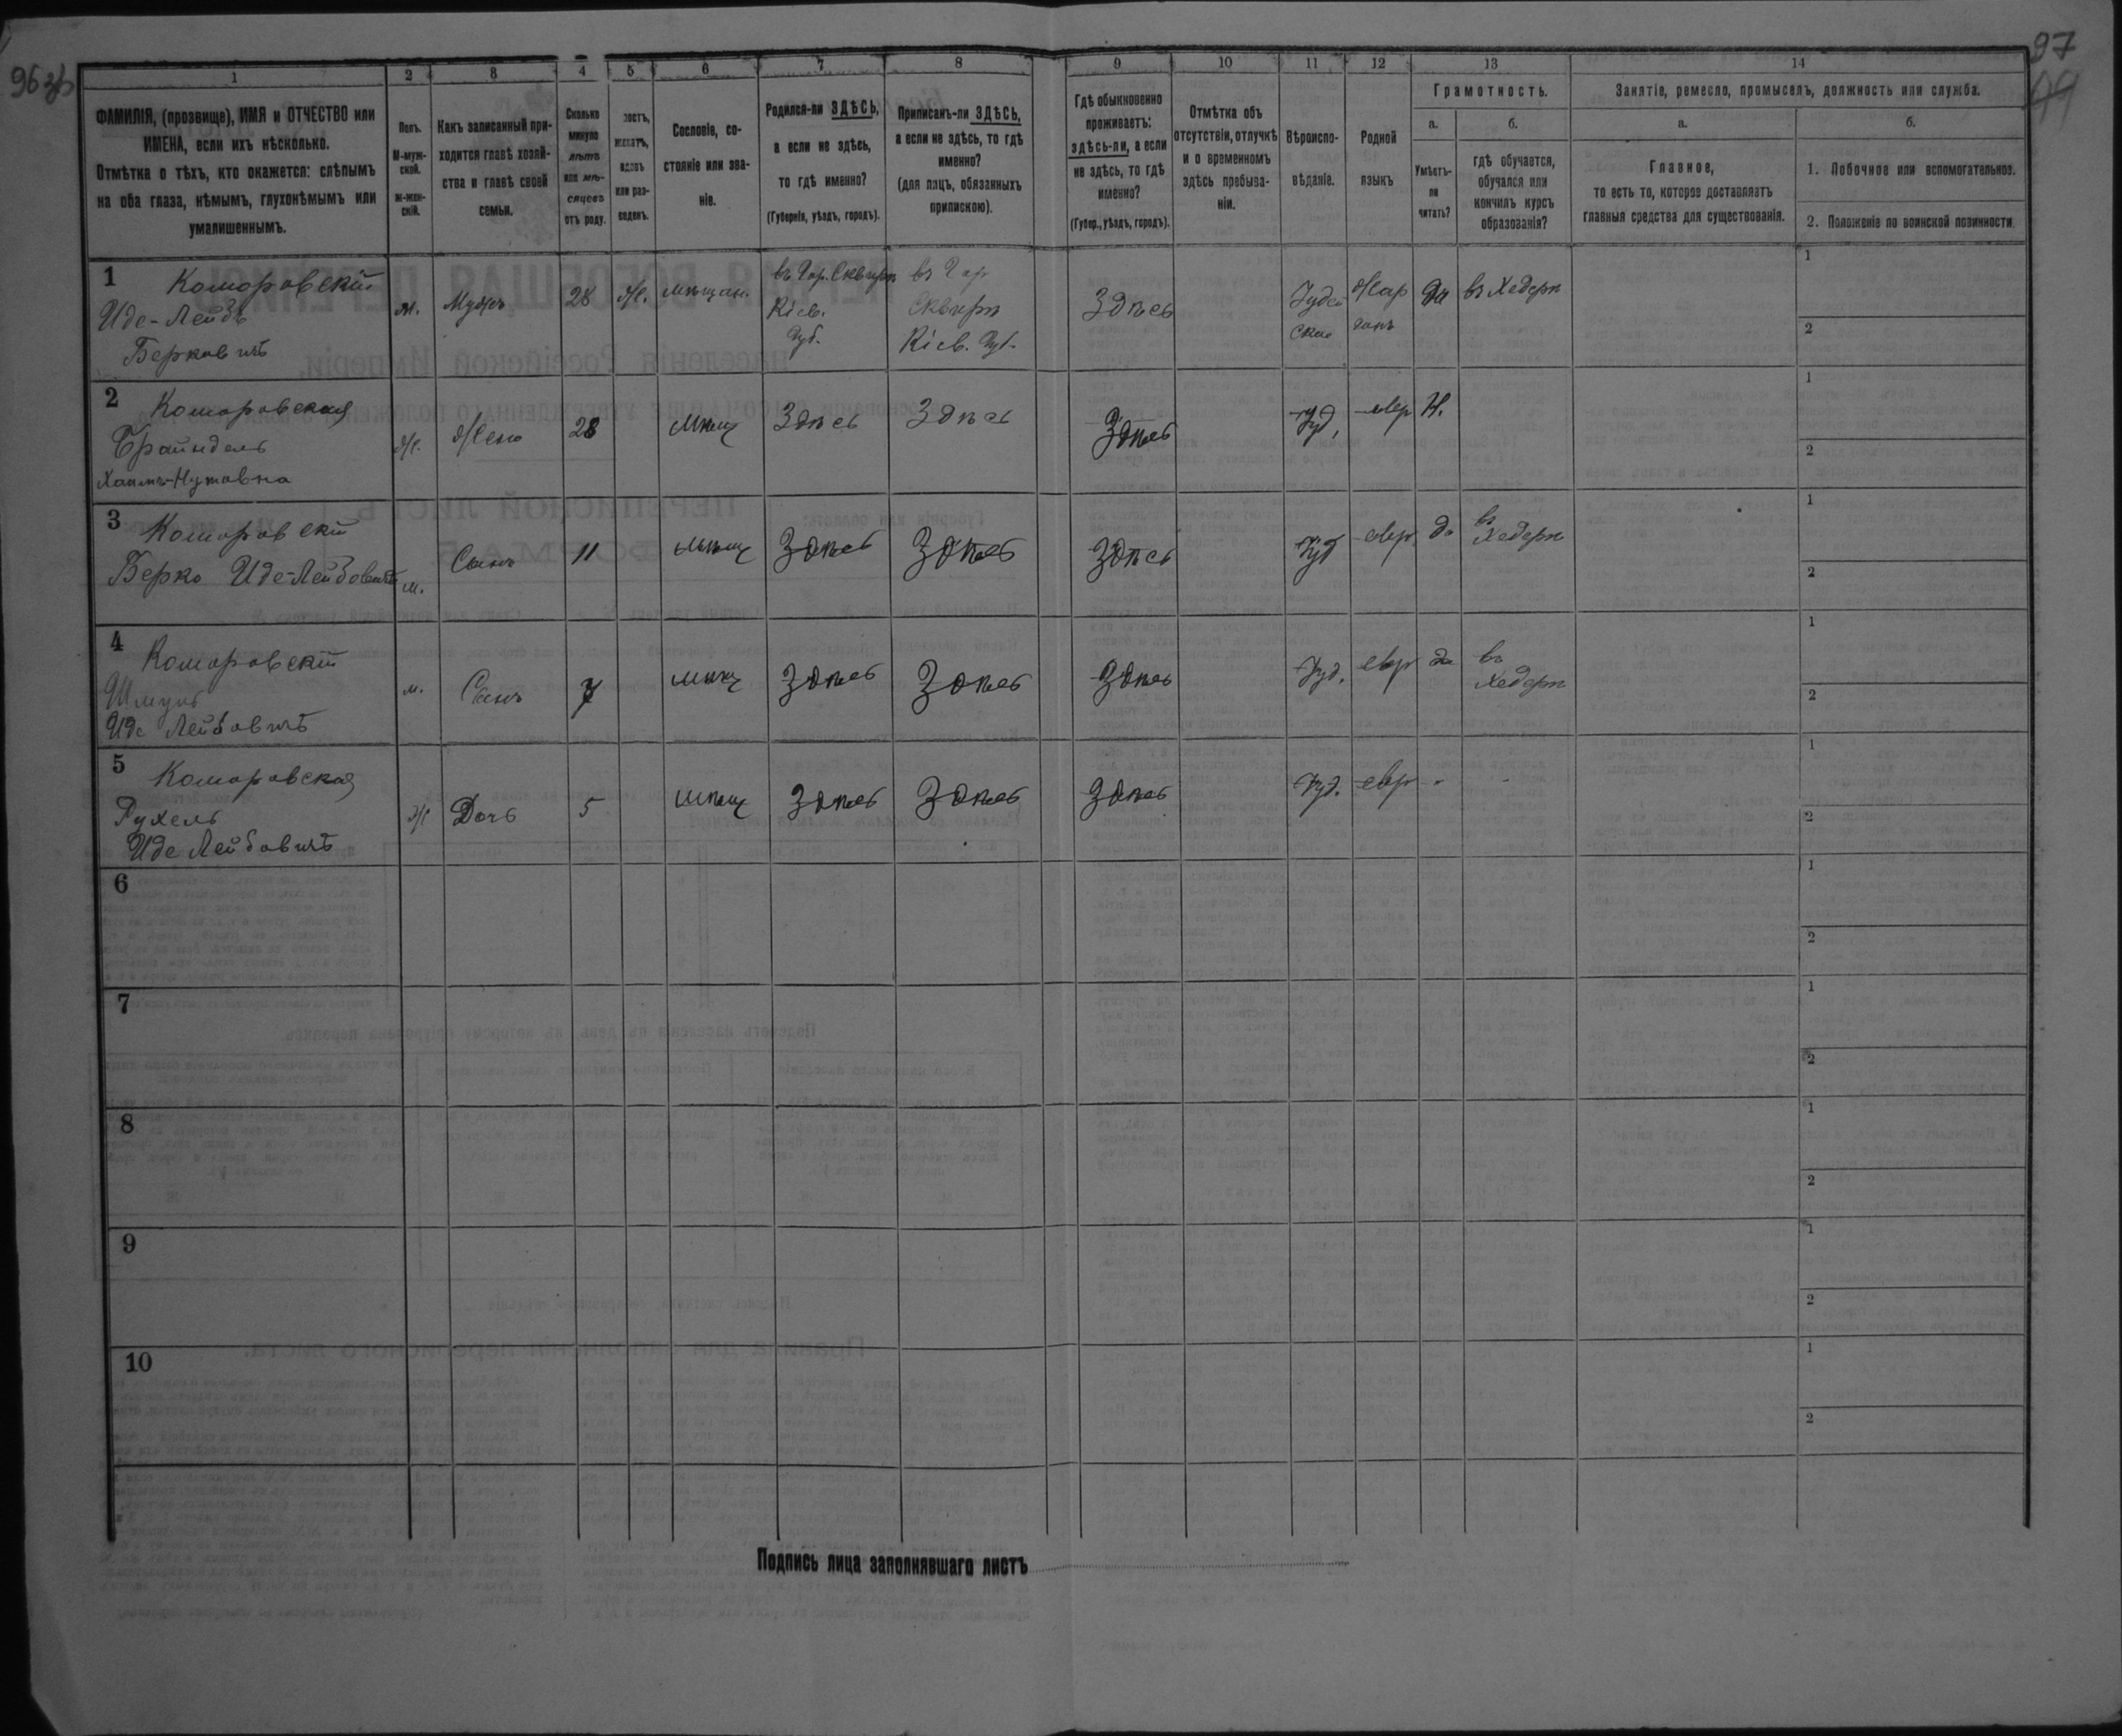 97
1 2 3 4 5 6 7 8 9 10 11 12 13 14
ФАМИЛІЯ, (прозвище), ИМЯ и ОТЧЕСТВО или
ИМЕНА, если ихъ нѣсколько.
Отмѣтка о тѣхъ, кто окажется: слѣпымъ
на оба глаза, нѣмымъ, глухонѣмымъ или
умалишеннымъ.
Полъ.
М-муж-
ской.
ж-жен-
скій.
Какъ записанный при-
ходится главѣ хозяй-
ства и главѣ своей
семьи.
Сколько
минуло
лѣтъ
или мѣ-
сяцевъ
отъ роду.
женатъ,
вдовъ
или раз-
веденъ.
Сословіе, со-
стояніе или зва-
ніе.
Родился-ли ЗДѢСЬ,
а если не здѣсь,
то гдѣ именно?
(Губернія, уѣздъ, городъ).
Приписанъ-ли ЗДѢСЬ,
а если не здѣсь, то гдѣ
именно?
(для лицъ, обязанныхъ
припискою).
Гдѣ обыкновенно
проживаетъ:
здѣсь-ли, а если
не здѣсь, то гдѣ
именно?
(Губер., уѣздъ, городъ).
Отмѣтка объ
отсутствіи, отлучкѣ
и о временномъ
здѣсь пребыва-
ніи.
Вѣроиспо-
вѣданіе.
Родной
языкъ
Грамотность.
а.
Умѣетъ-
ли
читать?
б.
гдѣ обучается,
обучался или
кончилъ курсъ
образованія?
Занятіе, ремесло, промыселъ, должность или служба.
а.
Главное,
то есть то, которое доставляетъ
главныя средства для существованія.
б.
1. Побочное или вспомогательное.
2. Положеніе по воинской повинности.
1 Коморовскій
Иде-Лейбъ
Берковичъ
м.
Мужъ
28
Ж.
мѣщан.
въ Гор. Сквирѣ
Кіев.
Губ.
въ Гор
Сквирѣ
Кіев. Губ.
Здѣсь
Іудей
ское
Жар
гонъ
Да
въ Хедерѣ
1
2
2 Коморовская
Брайндель
Хаимъ-Нутовна
Ж.
Жена
28
мѣщ
Здѣсь
Здѣсь
Здѣсь
Іуд,
евр
Н.
1
2
3 Коморовскій
Берко Иде-Лейбовичъ
м.
Сынъ
11
мѣщ
Здѣсь
Здѣсь
Здѣсь
Іуд
евр
да
въ
Хедерѣ
1
2
4 Коморовскій
Шмуль
Иде Лейбовичъ
м.
Сынъ
7
мѣщ
Здѣсь
Здѣсь
Здѣсь
Іуд.
евр
да
въ
Хедерѣ
1
2
5 Коморовская
Рухель
Иде Лейбовичъ
Ж
Дочь
5
мѣщ
Здѣсь
Здѣсь
Здѣсь
Іуд.
евр
1
2
6
1
2
7
1
2
8
1
2
9
1
2
10
1
2
Подпись лица заполнявшаго листъ